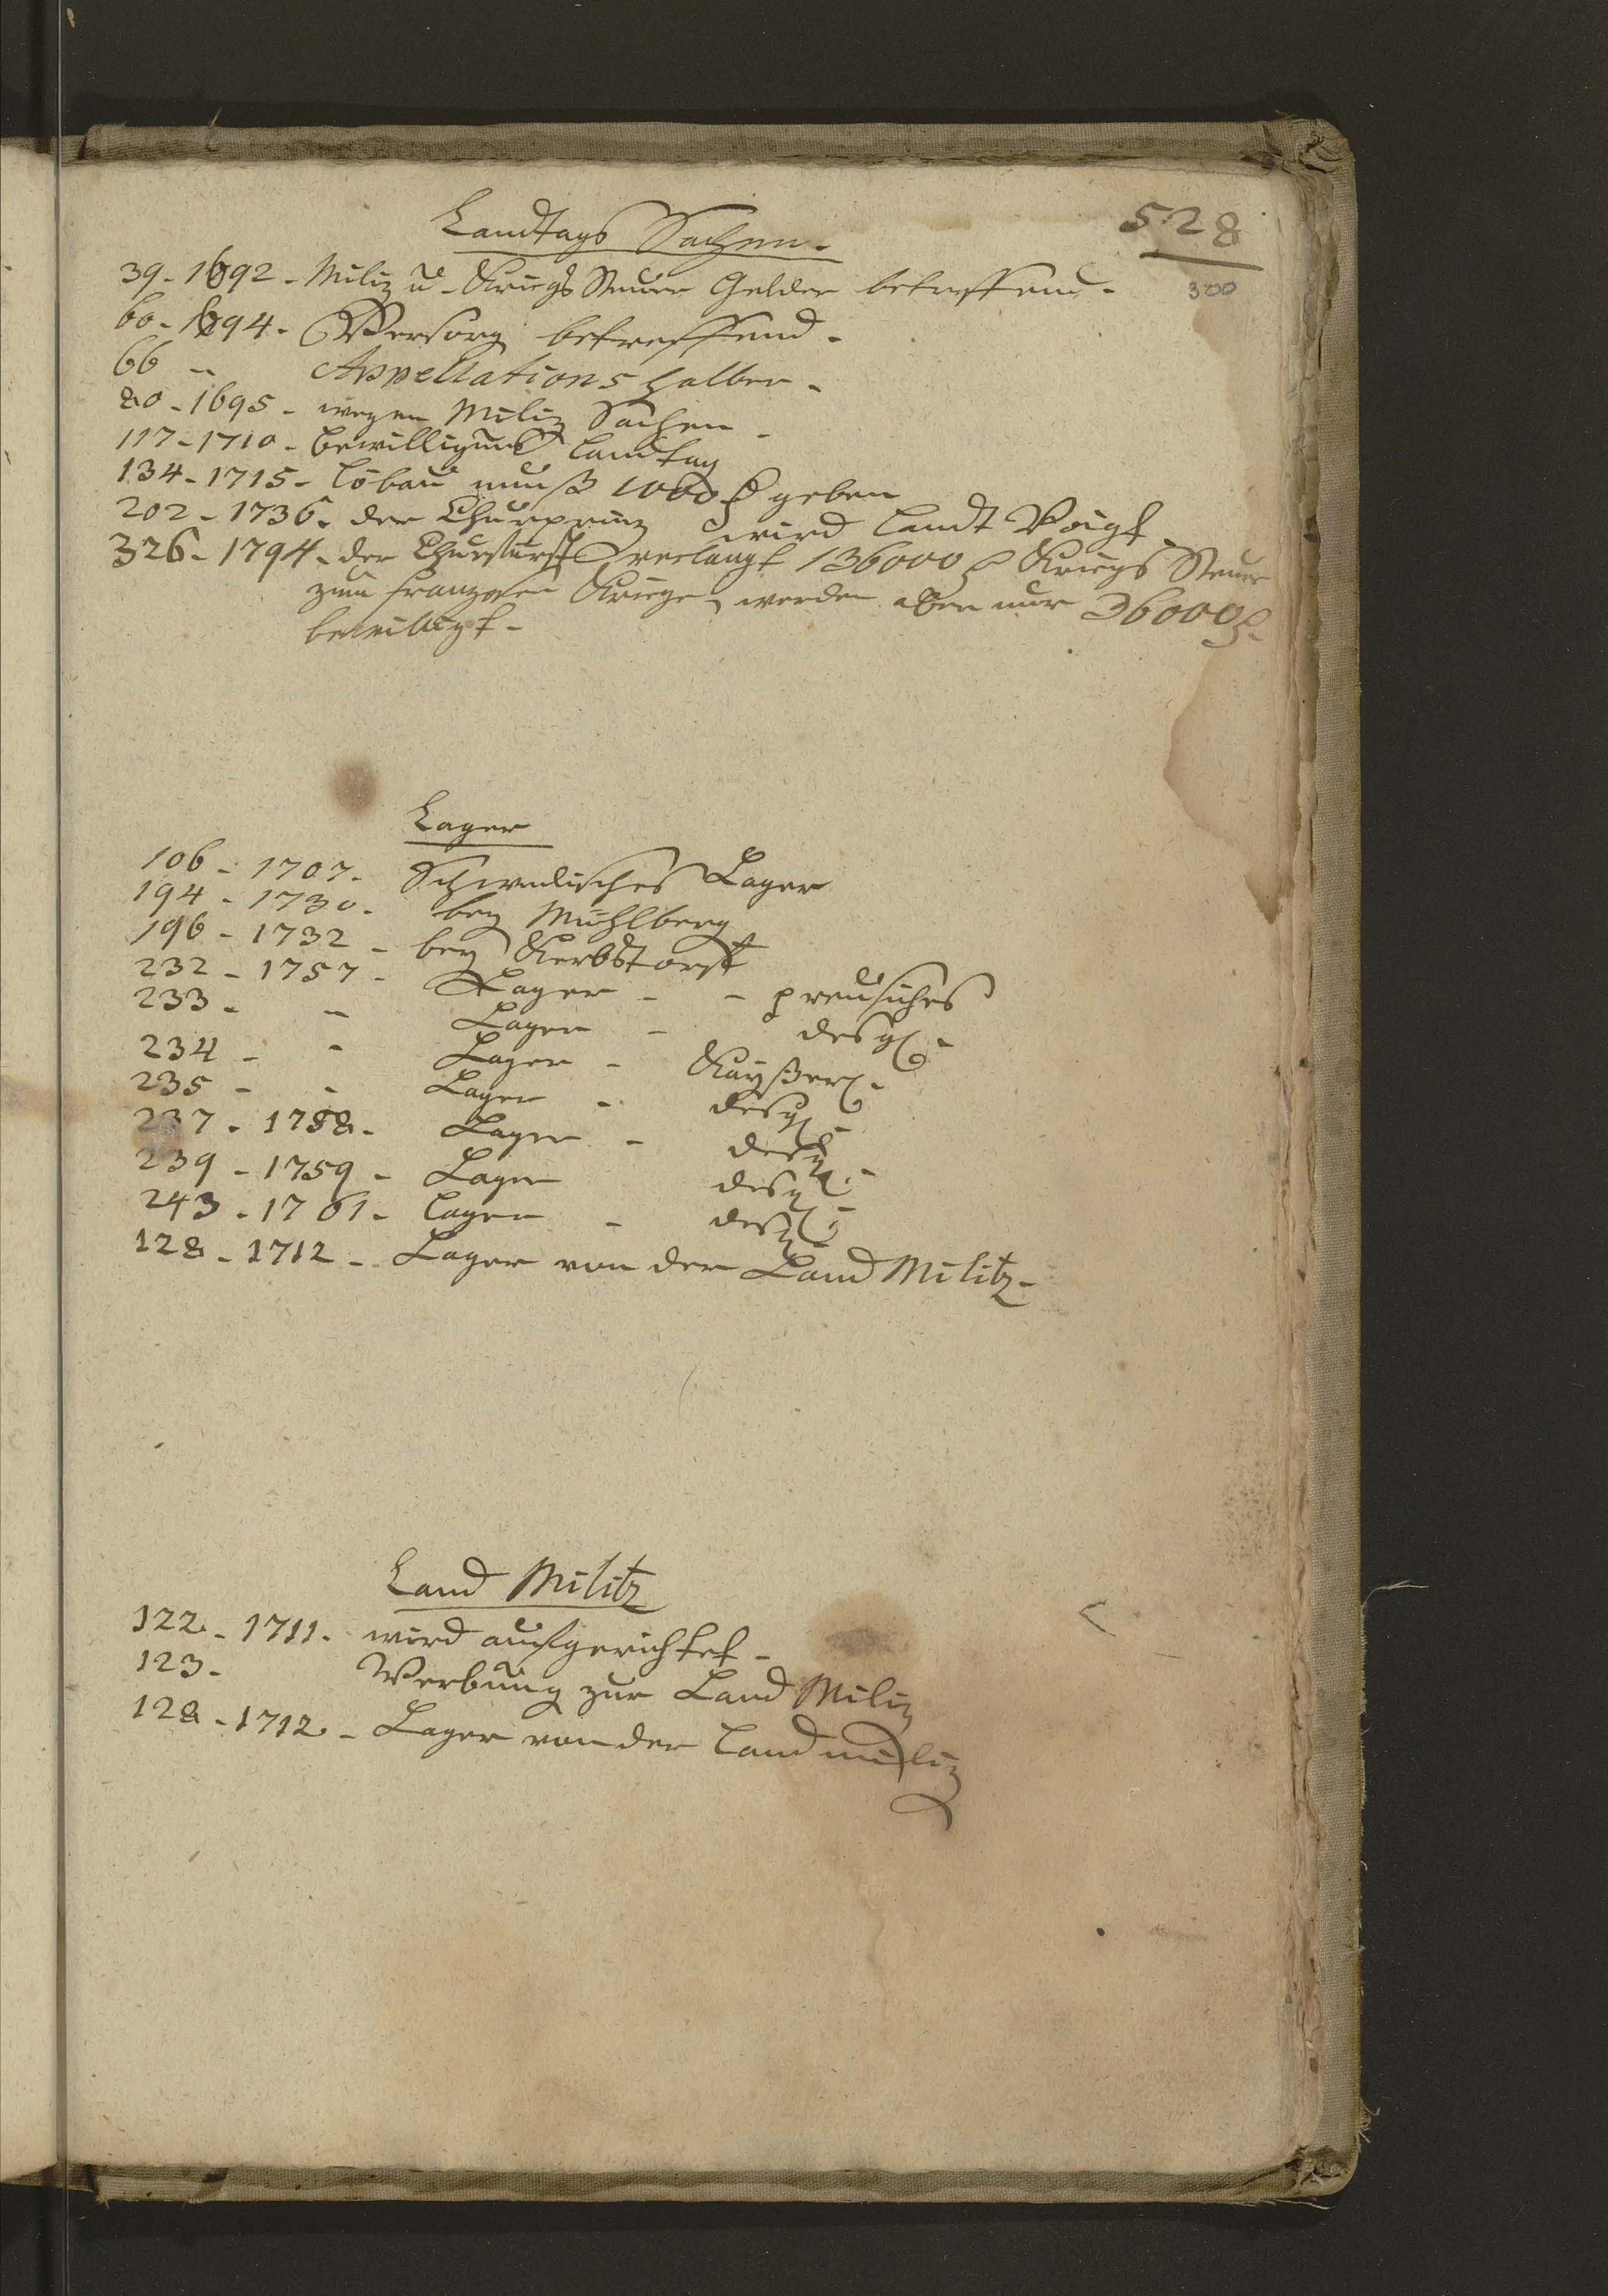 528
300
Landtags Sachen.
39 - 1692 - Miliz u - Kriegs Steuer Gelder betreffend -
60 - 1694 - Versorg betreffend -
66 " Appellations halber -
80 - 1695 - wegen Miliz Sachen -
117 - 1710 - bewilligungs Landtag
134 - 1715 - Löbau muß 1000 f geben
202 - 1736 - der Churprinz wird Landt Voigt
326 - 1794 - der Churfürst verlangt 136000 f Kriegs Steuer
zum franzosen Kriege, werden aber nur 36000 f
bewilligt -
Lager
106 - 1707 - Schwedisches Lager
194 - 1730 - bey Mühlberg
196 - 1732 - bey Kerbstorf
232 - 1757 - Lager - - preusiches
233 - " Lager - desgl -
234 - " Lager - Kayßerl -
235 - - Lager - desgl -
237 - 1758 - Lager - desgl -
239 - 1759 - Lager desgl -
243 - 1761 - Lager - desgl -
128 - 1712 - Lager von der Land Militz -
Land Militz
122 - 1711 - wird aufgerichtet -
123 - Werbung zur Land Miliz
128 - 1712 - Lager von der Land miliz